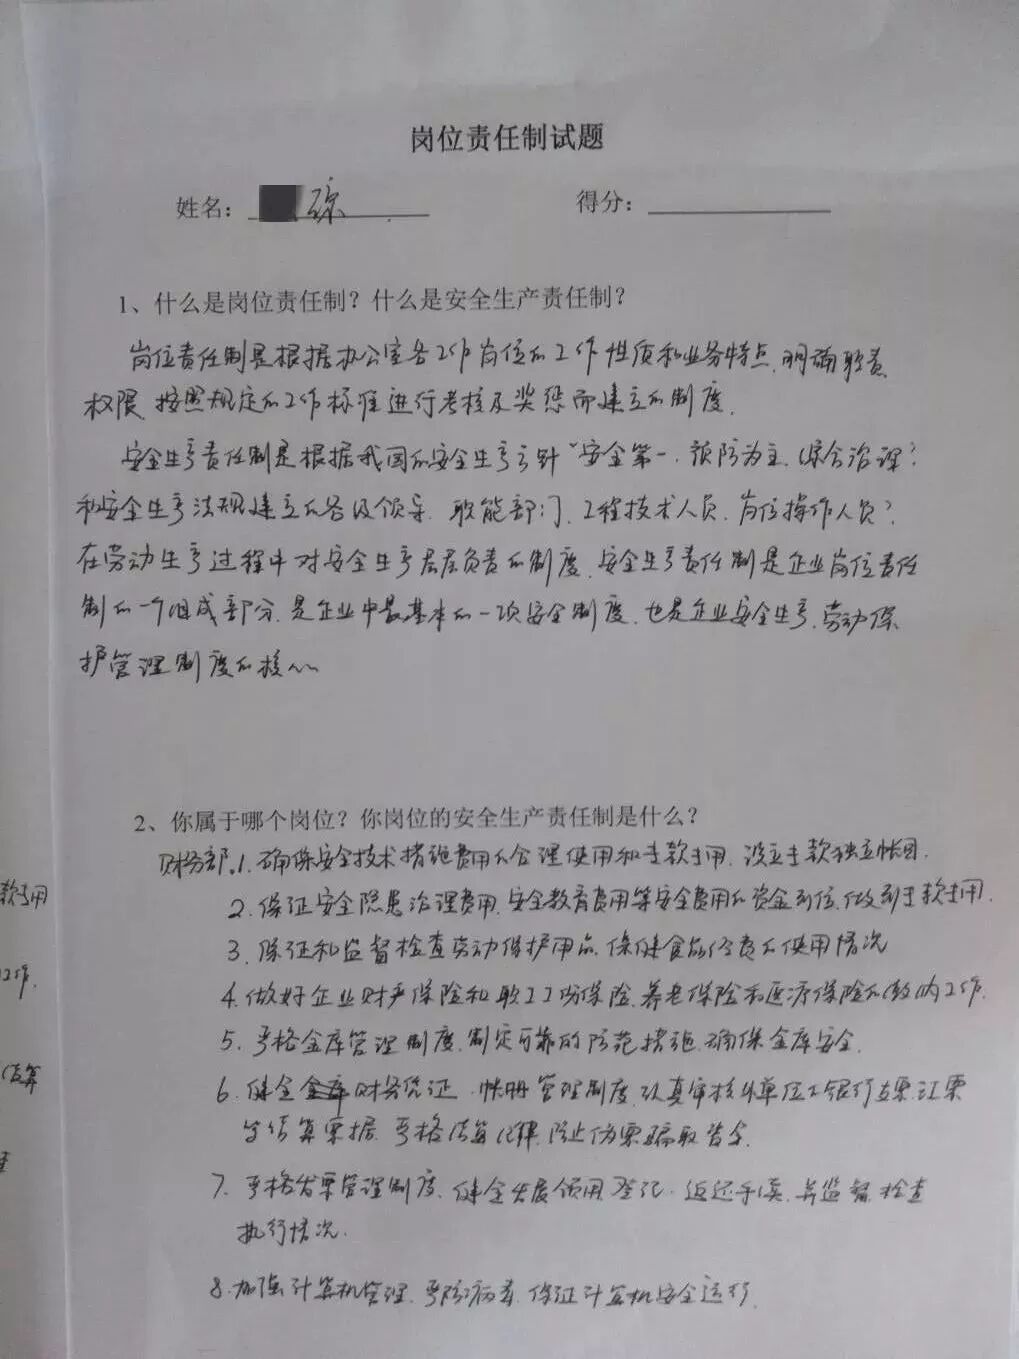 岗位责任制试题
姓名： 琼
得分：
1、什么是岗位责任制？什么是安全生产责任制？
岗位责任制是根据办公室各工作岗位的工作性质和业务特点,明确职责
权限,按照规定的工作标准进行考核及奖惩而建立的制度.
安全生产责任制是根据我国的安全生产方针"安全第一.预防为主.综合治理"
和安全生产法规建立的各级领导.职能部门.工程技术人员.岗位操作人员
在劳动生产过程中对安全生产层层负责的制度.安全生产责任制是企业岗位责任
制的一个组成部分.是企业中最基本的一项安全制度.也是企业安全生产.劳动保
护管理制度的核心
2、你属于哪个岗位？你岗位的安全生产责任制是什么？
财务部.1.确保安全技术措施费用的合理使用和专款专用.设立专款独立帐目.
2.保证安全隐患治理费用.安全教育费用等安全费用的资金到位.做到专款专用.
3.保证和监督检查劳动保护用品.保健食品经费的使用情况
4.做好企业财产保险和职工工伤保险.养老保险和医疗保险的缴纳工作.
5.严格金库管理制度.制定可靠的防范措施.确保金库安全.
6.健全财务凭证.帐册管理制度.认真审核外单位银行支票.汇票
等结算票据.严格结算纪律.防止伪票骗取资金.
7.严格发票管理制度.健全发票领用登记.返还手续.并监督检查
执行情况.
8.加强计算机管理.严防病毒.保证计算机安全运行.
款专用
工作.
结算